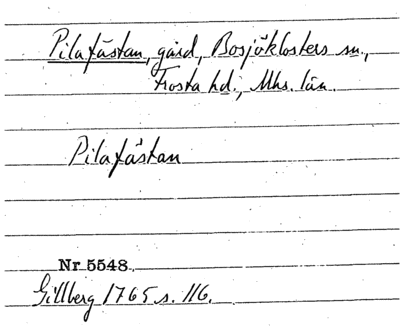 Pilafästan, gård, Bosjöklosters sn.,
Frosta hd., Mhs. län.
Pilafästan
Nr 5548
Gillberg 1765 s. 116.